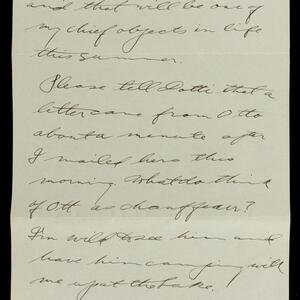 and that will be one of
my chief objects in life
this summer.
Please tell Dotti that a
letter came from Otto
about a minute after
I mailed hers this
morning. What do think
of Ott as chauffeur?
I'm wild to see him and
have him camping with
me up at the Lake.